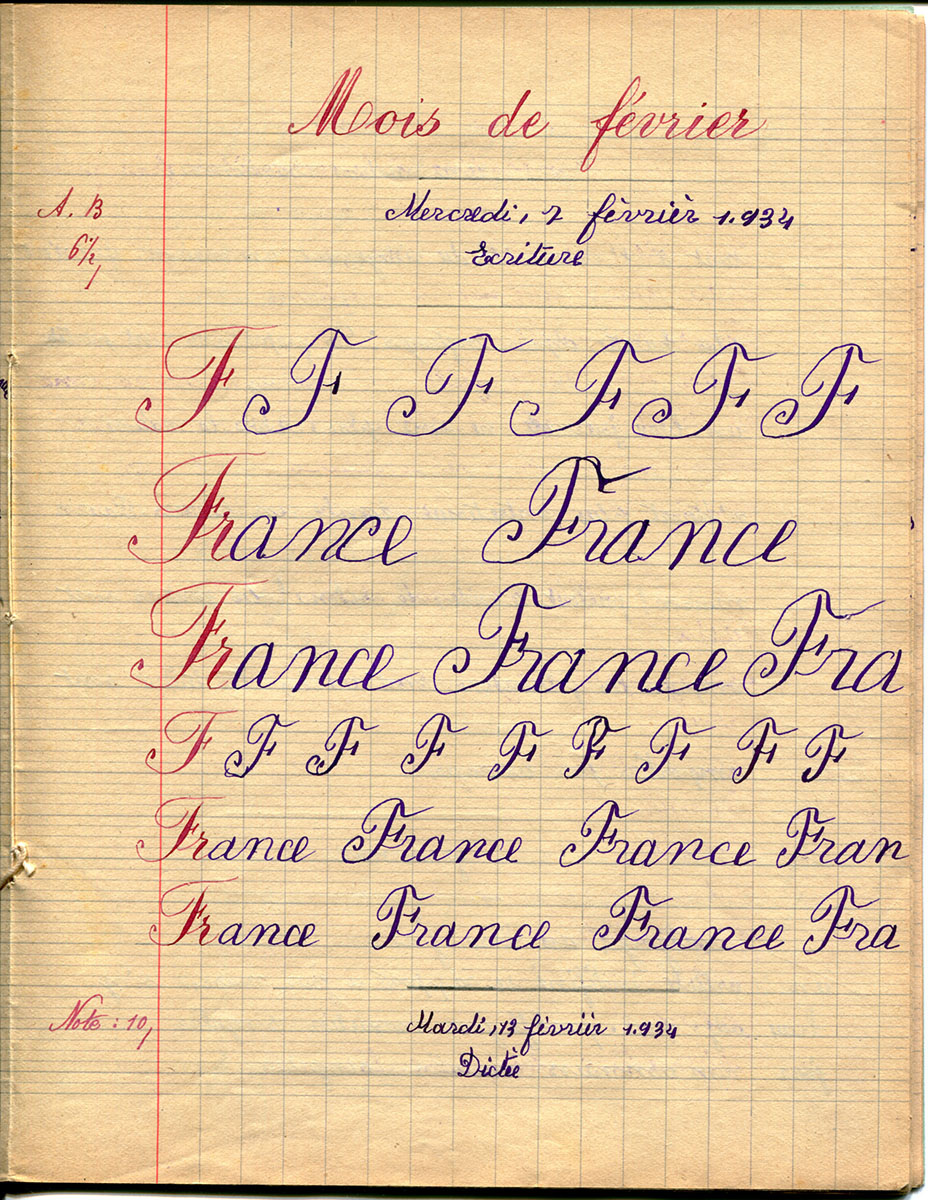 Mois de février
A. B
Mercredi, 7 février 1.934
6 1/2
Ecriture
F F F F F F
France France
France France Fra
F F F F F F F F F
France France France Fran
France France France Fra
Note : 10,
Mardi, 13 février 1.934
Dictée